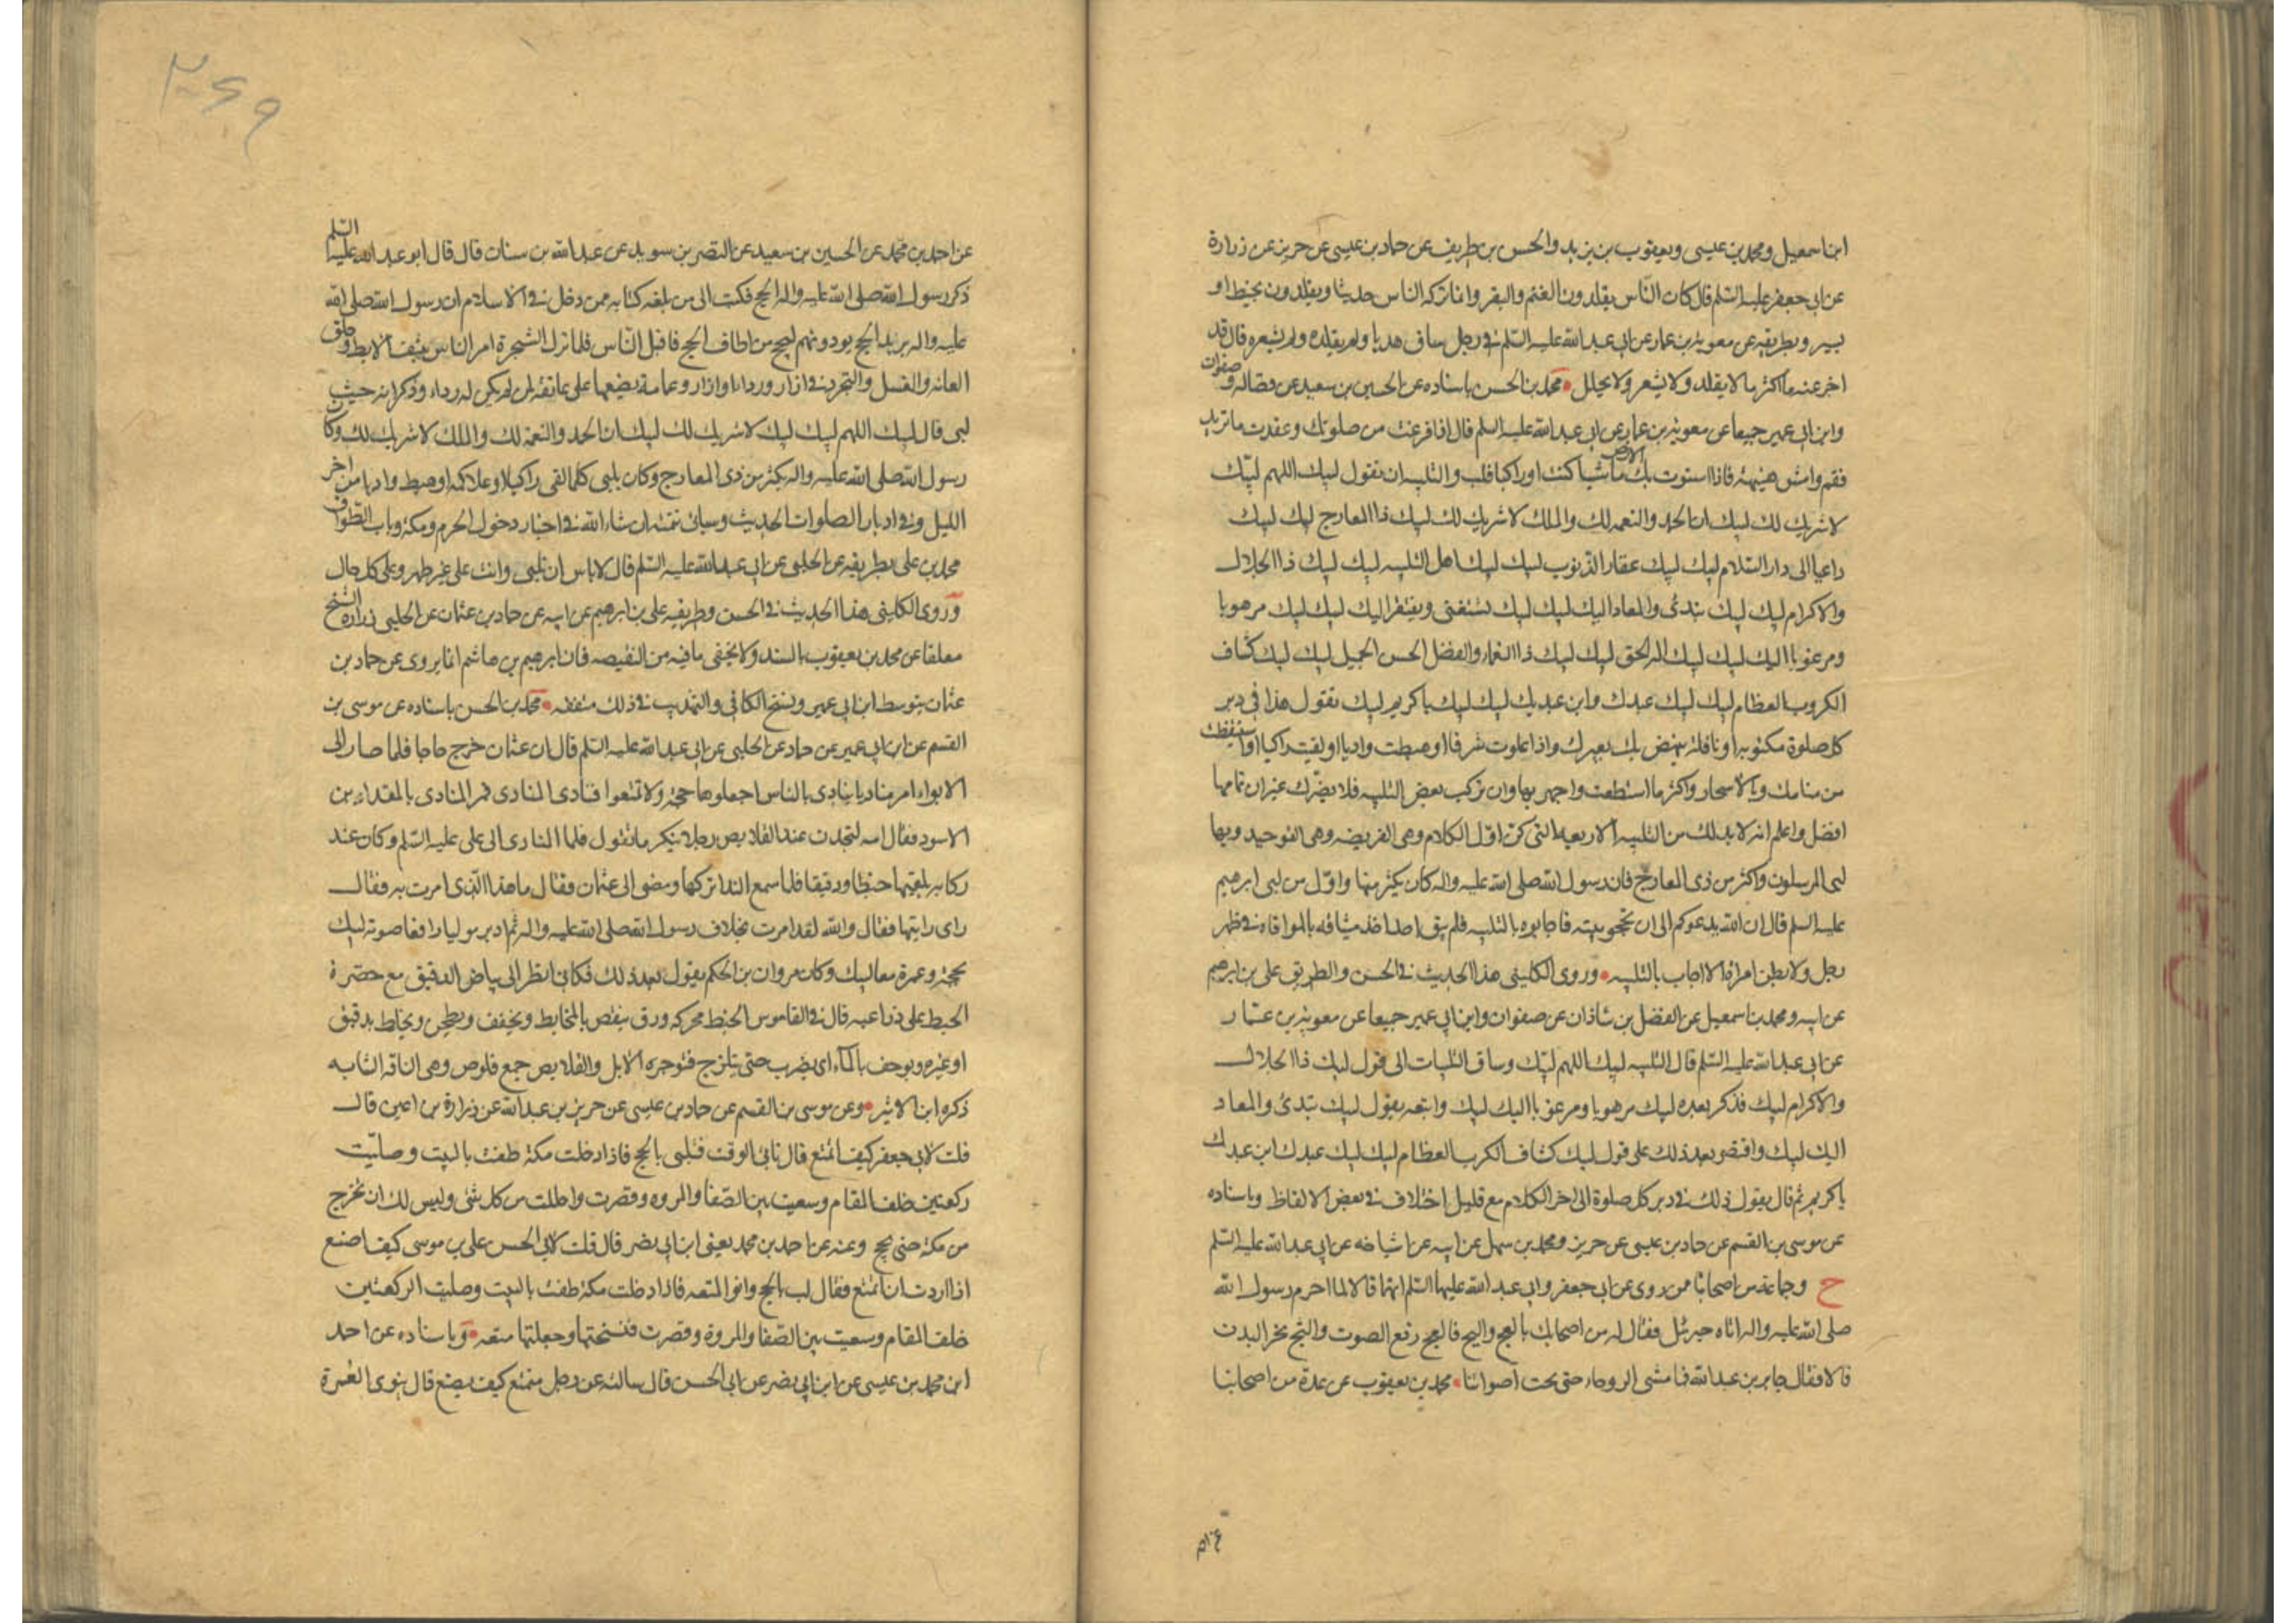 ابن اسمعيل ومحمد بن عيسى ويعقوب بن يزيد والحسن بن طريف عن حماد بن عيسى عن حريز عن زرارة
عن ابي جعفر عليه السّلم قال كان النّاس يقلدون الغنم والبقر وانما تركه الناس حديثا ويقلدون بخيط او
بسير وبطريقه عن معوية بن عمار عن ابي عبد الله عليه السّلم في رجل ساق هديا ولم يقلده ولم يشعره قال قد
اجزء عنه ما اكثر ما لا يقلد ولا يشعر ولا يجلل • محمّد بن الحسن باسناده عن الحسين بن سعيد عن فضاله وصفوان
وابن ابي عمير جميعا عن معوية بن عمار عن ابي عبد الله عليه السلم قال اذا فرغت من صلوتك وعقدت ما تريد
فقم وامش هنيهة فاذا استوت بك الارض ماشيا كنت او راكبا فلب والتلبيه ان تقول لبيك اللهم لبّيك
لا شريك لك لبيك ان الحمد والنعمه لك والملك لا شريك لك لبيك ذا المعارج لبيك لبيك
داعيا الى دار السّلام لبيك لبيك غفار الذنوب لبيك لبيك اهل التلبيه لبيك لبيك ذا الجلال
والاكرام لبيك لبيك تبدئ والمعاد اليك لبيك لبيك تستغنى ويفتقر اليك لبيك لبيك مرهوبا
ومرغوبا اليك لبيك لبيك اله الحق لبيك لبيك ذا النعماء والفضل الحسن الجميل لبيك لبيك كشاف
الكرب العظام لبيك لبيك عبدك وابن عبديك لبيك لبيك يا كريم لبيك تقول هذا في دبر
كل صلوة مكتوبه او نافلة ينهض بك بعيرك واذا علوت شرفا او هبطت واديا او لقيت راكبا او استيقظت
من منامك وبالاسحار واكثر ما استطعت واجهر بها وان تركت بعض التلبيه فلا يضرّك غير ان تمامها
افضل واعلم انه لا بد لك من التلبيه الاربعه التي كن اوّل الكلام وهي الفريضه وهي التوحيد وبها
لبى المرسلون واكثر من ذي المعارج فان رسول الله صلى الله عليه واله كان يكثر منها واوّل من لبى ابرهيم
عليه السلم قال ان الله يدعوكم الى ان تحجوا بيته فاجابوه بالتلبيه فلم يبق احد اخذ ميثاقه بالموافاه في ظهر
رجل ولا بطن امراة الا اجاب بالتلبيه • وروى الكليني هذا الحديث في الحسن والطريق علي بن ابرهيم
عن ابيه ومحمد بن اسمعيل عن الفضل بن شاذان عن صفوان وابن ابي عمير جميعا عن معوية بن عمّار
عن ابي عبد الله عليه السّلم قال التلبيه لبيك اللهم لبّيك وساق التلبيات الى قول لبيك ذا الجلال
والاكرام لبيك فذكر بعده لبيك مرهوبا ومرغوبا اليك لبيك واتبعه بقول لبيك تبدئ والمعاد
اليك لبيك واقتصر بعد ذلك على قول لبيك كشاف الكرب العظام لبيك لبيك عبدك ابن عبدك
يا كريم ثم قال يقول ذلك في دبر كل صلوة الى اخر الكلام مع قليل اختلاف في بعض الالفاظ وباسناده
عن موسى بن القسم عن حماد بن عيسى عن حريز ومحمد بن سهل عن ابيه عن اشياخه عن ابي عبد الله عليه السّلم
ح وجماعة من اصحابنا ممن روى عن ابي جعفر وابي عبد الله عليهما السّلم انهما قالا لما احرم رسول الله
صلى الله عليه واله اتاه جبرئل فقال له مر اصحابك بالعج والثج فالعج رفع الصوت والثج نحر البدن
قالا فقال جابر بن عبد الله فما مشى الروحاء حتى بحت اصواتنا • محمد بن يعقوب عن عدة من اصحابنا
عن احمد بن محمّد عن الحسين بن سعيد عن النضر بن سويد عن عبد الله بن سنان قال قال ابو عبد الله عليه السّلم
ذكر رسول الله صلى الله عليه واله الحج فكتب الى من بلغه كتابه ممن دخل في الاسلام ان رسول الله صلى الله
عليه واله يريد الحج يوذونهم ليحج من اطاق الحج فاقبل النّاس فلما نزل الشجرة امر الناس بنتف الابط وحلق
العانه والغسل والتجرد في ازار ورداء او ازار وعمامة يضعها على عاتقه لمن لم يكن له رداء وذكر انه حيث
لبى قال لبيك اللهم لبيك لبيك لا شريك لك لبيك ان الحمد والنعمة لك والملك لا شريك لك وكان
رسول الله صلى الله عليه واله يكثر من ذي المعارج وكان يلبي كلما لقى راكبا او علا اكمه او هبط واديا من اخر
الليل وفي ادبار الصلوات الحديث وسياتي تتمته ان شاء الله في اخبار دخول الحرم ومكة وباب الطّواف
محمد بن علي بطريقه عن الحلبي عن ابي عبد الله عليه السّلم قال لا باس ان تلبي وانت على غير طهر وعلى كل حال
وروى الكليني هذا الحديث في الحسن وطريقه علي بن ابرهيم عن ابيه عن حماد بن عثمان عن الحلبي ورواه الشيخ
معلقا عن محمد بن يعقوب بالسند ولا يخفى ما فيه من النقيصه فان ابرهيم بن هاشم انما يروى عن حماد بن
عثمان بتوسط ابن ابي عمير ونسخ الكافي والتهذيب في ذلك متفقه • محمّد بن الحسن باسناده عن موسى بن
القسم عن ابن ابي عمير عن حماد عن الحلبي عن ابي عبد الله عليه السّلم قال ان عثمان خرج حاجا فلما صار الى
الابواء امر مناديا ينادى بالناس اجعلوها حجة ولا تتمتعوا فنادى المنادى فمر المنادى بالمقداد بن
الاسود فقال اما لتجدن عند القلايص رجلا ينكر ما تقول فلما المنادى الى علي عليه السّلم وكان عند
ركابه يلقمها خبطا ودقيقا فلما سمع النداء تركها ومضى الى عثمان وقال ما هذا الّذي امرت به فقال
راى رايتها فقال والله لقد امرت بخلاف رسول الله صلى الله عليه واله ثم ادبر موليا رافعا صوته لبيك
بحجة وعمرة معا لبيك وكان مروان بن الحكم يقول بعد ذلك فكاني انظر الى بياض الدقيق مع خضرة
الخبط على ذراعيه قال في القاموس الخبط محركه ورق ينفض بالمخابط ويجفف ويطحن ويخلط بدقيق
او غيره ويوخف بالماء اي يضرب حتى يتلزج فتوجره الابل والقلايص جمع قلوص وهي الناقه الشابه
ذكره ابن الاثير • وعن موسى بن القسم عن حماد بن عيسى عن حريز بن عبد الله عن زرارة بن اعين قال
قلت لابي جعفر كيف اتمتع قال تاتي الوقت فتلبى بالحج فاذا دخلت مكة طفت بالبيت وصلّيت
ركعتين خلف المقام وسعيت بين الصّفا والمروه وقصرت واحللت من كل شئ وليس لك ان تخرج
من مكة حتى تحج وعنه عن احمد بن محمد يعني ابن ابي نصر قال قلت لابي الحسن علي بن موسى كيف اصنع
اذا اردت ان اتمتع فقال لب بالحج وانو المتعه فاذا دخلت مكة طفت بالبيت وصليت الركعتين
خلف المقام وسعيت بين الصّفا والمروة وقصرت فنسختها وجعلتها متعه • وباسناده عن احمد
ابن محمد بن عيسى عن ابن ابي نصر عن ابي الحسن قال سالته عن رجل متمتع كيف يصنع قال ينوى العمرة